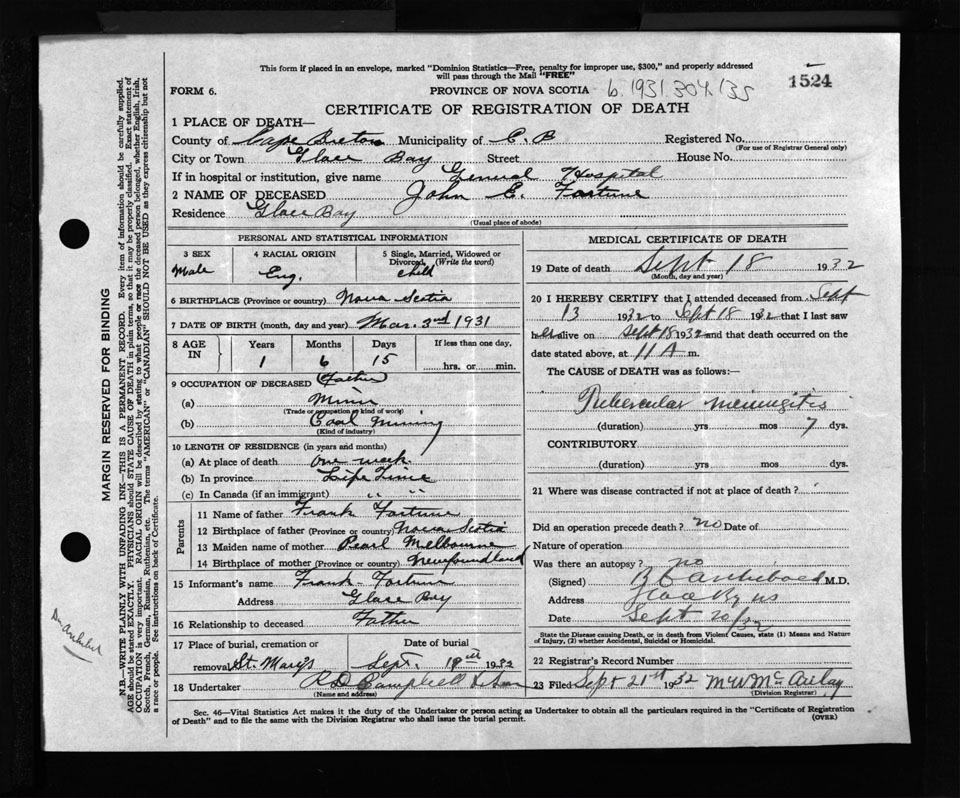 This form if placed in an envelope, marked "Dominion Statistics—Free, penalty for improper use, $300," and properly addressed
will pass through the Mail "FREE"
1524
FORM 6.
PROVINCE OF NOVA SCOTIA b.1931.304.135
CERTIFICATE OF REGISTRATION OF DEATH
1 PLACE OF DEATH—
County of Cape Breton Municipality of C.B Registered No.
(For use of Registrar General only)
City or Town Glace Bay Street House No.
If in hospital or institution, give name General Hospital
2 NAME OF DECEASED John E. Fortune
Residence Glace Bay
(Usual place of abode)
PERSONAL AND STATISTICAL INFORMATION
3 SEX
Male
4 RACIAL ORIGIN
Eng.
5 Single, Married, Widowed or
Divorced, (Write the word)
Child
6 BIRTHPLACE (Province or country) Nova Scotia
7 DATE OF BIRTH (month, day and year) Mar. 3rd 1931
8 AGE IN
Years Months Days If less than one day,
1 6 15 hrs. or min.
9 OCCUPATION OF DECEASED (Father)
(a) Miner
(Trade or occupation or kind of work)
(b) Coal Mining
(Kind of industry)
10 LENGTH OF RESIDENCE (in years and months)
(a) At place of death one week
(b) In province Life Time
(c) In Canada (if an immigrant) " "
Parents
11 Name of father Frank Fortune
12 Birthplace of father (Province or country) Nova Scotia
13 Maiden name of mother Pearl Melbourne
14 Birthplace of mother (Province or country) Newfoundland
15 Informant's name Frank Fortune
Address Glace Bay
16 Relationship to deceased Father
17 Place of burial, cremation or Date of burial
removal St. Mary's Sept. 1932
18 Undertaker R D Campbell & Son
(Name and address)
MEDICAL CERTIFICATE OF DEATH
19 Date of death Sept 18 1932
(Month, day and year)
20 I HEREBY CERTIFY that I attended deceased from Sept
13 1932 to Sept 18 1932 that I last saw
h alive on Sept 18 1932 and that death occurred on the
date stated above, at 11 A m.
The CAUSE of DEATH was as follows:—
Tubercular meningitis
(duration) yrs mos 7 dys.
CONTRIBUTORY
(duration) yrs. mos. dys.
21 Where was disease contracted if not at place of death?
Did an operation precede death? no Date of
Nature of operation
Was there an autopsy? no
(Signed) Archibald M.D.
Address Glace Bay NS
Date Sept 20/32
State the Disease causing Death, or in death from Violent Causes, state (1) Means and Nature
of Injury, (2) whether Accidental, Suicidal or Homicidal.
22 Registrar's Record Number
23 Filed Sept 21st 1932 McAulay
(Division Registrar)
Sec. 46—Vital Statistics Act makes it the duty of the Undertaker or person acting as Undertaker to obtain all the particulars required in the "Certificate of Registration
of Death" and to file the same with the Division Registrar who shall issue the burial permit.
(OVER)
MARGIN RESERVED FOR BINDING
N.B.—WRITE PLAINLY WITH UNFADING INK—THIS IS A PERMANENT RECORD. Every item of information should be carefully supplied.
AGE should be stated EXACTLY. PHYSICIANS should STATE CAUSE OF DEATH in plain terms, so that it may be properly classified. Exact statement of
OCCUPATION is very important. RACIAL ORIGIN will be described by stating to what people or race the deceased person belonged, whether English, Irish,
Scotch, French, German, Russian, Ruthenian, etc. The terms "AMERICAN" or "CANADIAN" SHOULD NOT BE USED as they express citizenship but not
a race or people. See instructions on back of Certificate.
Dr Archibald